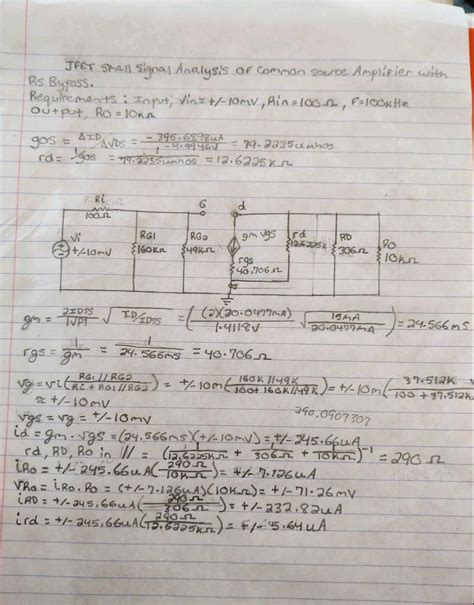 JFET Small Signal Analysis of Common Source Amplifier with
Rs Bypass.
Requirements: Input, Vin = +/-10mV, Rin = 100Ω, F=100kHz
Output, RO = 10kΩ
gos = ΔID/ΔVDS = -395.6898uA/-4.9946V = 79.2235umhos
rd = 1/gos = 1/79.2235umhos = 12.6225kΩ
Ri
100Ω
G
d
Vi
+/-10mV
RG1
160kΩ
RG2
49kΩ
gm vgs
rgs
40.706Ω
gs
rd
12.6225k
RD
306Ω
Ro
10kΩ
gm = 2IDSS/|VP| √ID/IDSS = ((2)(20.0477mA)/1.4118V √15mA/20.0477mA) = 24.566mS
rgs = 1/gm = 1/24.566ms = 40.706Ω
vg = vi(RG1//RG2/Ri + RG1//RG2) = +/-10m(160k//49k/100+160k//49k) = +/-10m(37.512k/100 + 37.512k)
≈ +/-10mV
290.0907307
vgs = vg = +/-10mV
id = gm · vgs = (24.566ms)(+/-10mV) = +/-245.66uA
rd, RD, RO in // = (1/12.6225k + 1/306Ω + 1/10kΩ)⁻¹ = 290Ω
iRo = +/-245.66uA(290Ω/10kΩ) = +/-7.126uA
VRo = iRo · Ro = (+/-7.126uA)(10kΩ) = +/-71.26mV
iRD = +/-245.66uA(290Ω/306Ω) = +/-232.82uA
ird = +/-245.66uA(290Ω/12.6225kΩ) = +/-5.64uA